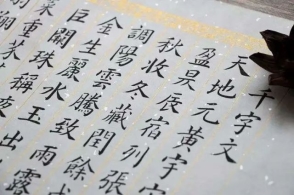 千字文
天地元黃宇
盈昃辰宿列張
秋收冬藏閏餘
調陽雲騰致雨露
金生麗水玉出
巨闕珠稱
重芥